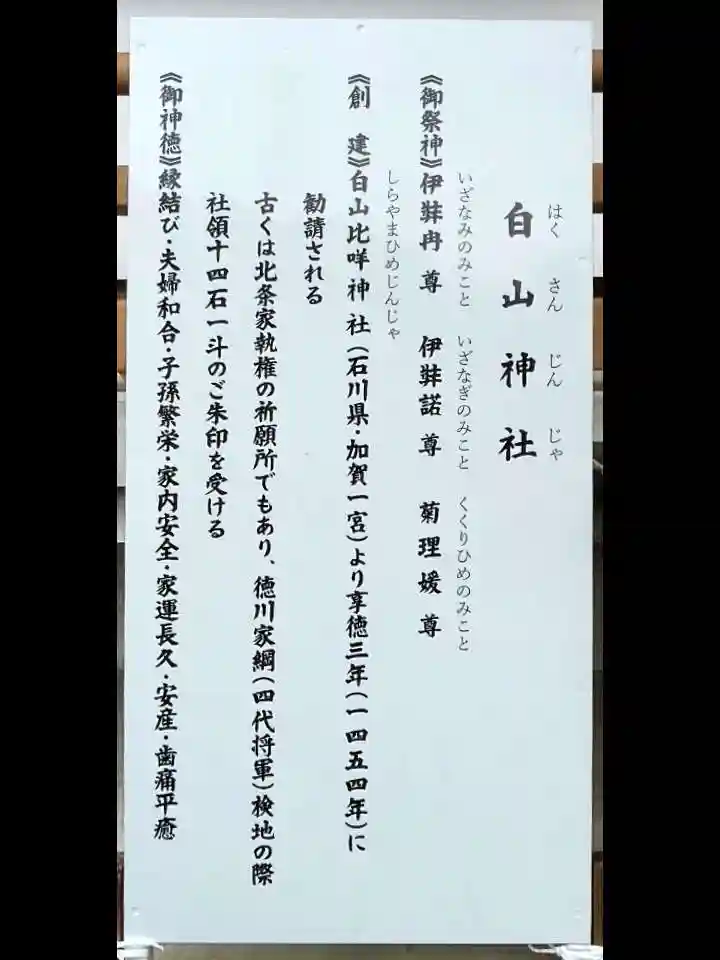 はくさんじんじゃ
白山神社
いざなみのみこと いざなぎのみこと くくりひめのみこと
《御祭神》伊弉冉尊 伊弉諾尊 菊理媛尊
しらやまひめじんじゃ
《創 建》白山比咩神社(石川県・加賀一宮)より享徳三年(一四五四年)に
勧請される
古くは北条家執権の祈願所でもあり、徳川家綱(四代将軍)検地の際
社領十四石一斗のご朱印を受ける
《御神徳》縁結び・夫婦和合・子孫繁栄・家内安全・家運長久・安産・歯痛平癒